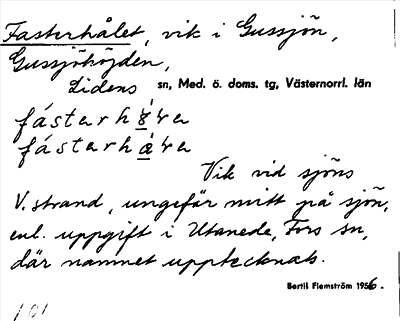 Fasterhålet, vik i Gussjön,
Gussjöhöjden,
Lidens sn, Med. ö. doms. tg, Västernorrl. län
fásterh
fásterh
Vik vid sjöns
V. strand, ungefär mitt på sjön,
enl. uppgift i Utanede, Fors sn,
där namnet upptecknats.
Bertil Flemström 1956.
101